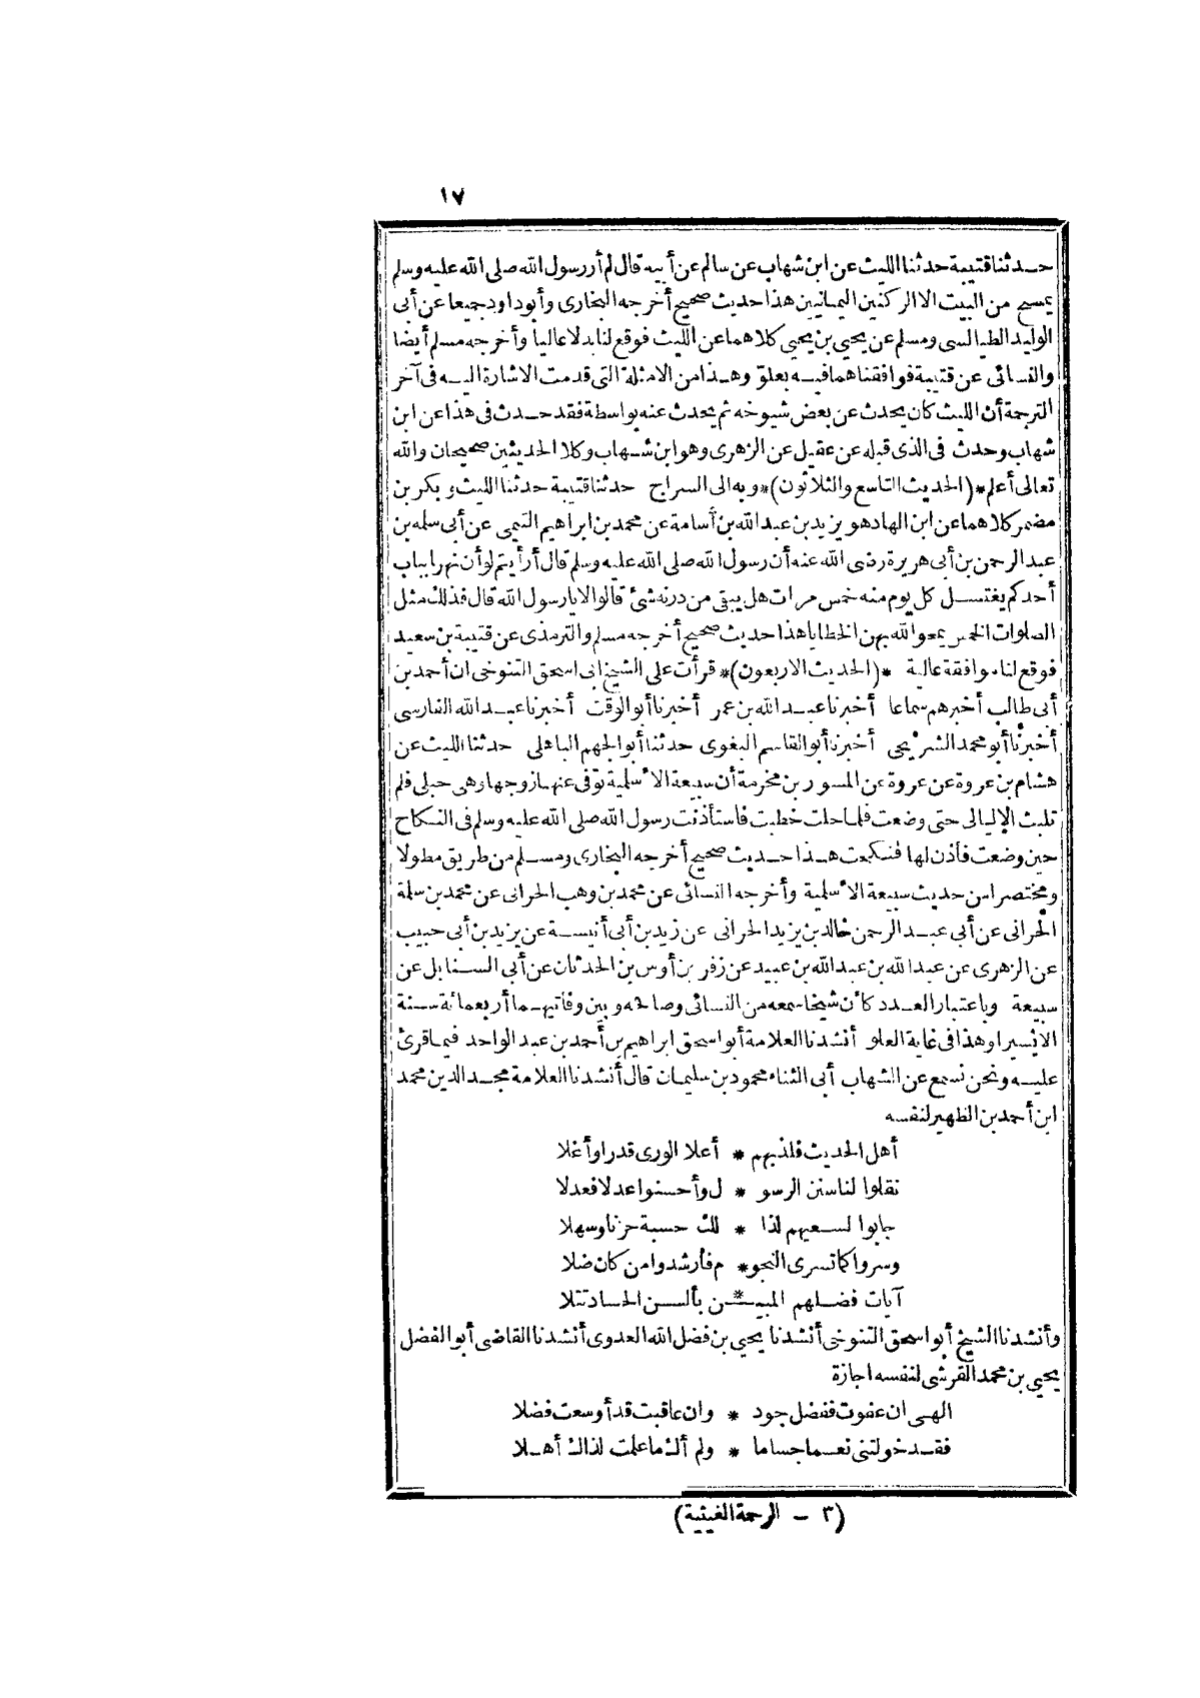 ١٧
حدثنا قتيبة حدثنا الليث عن ابن شهاب عن سالم عن أبيه قال لم أر رسول الله صلى الله عليه وسلم
يمسح من البيت الا الركنين اليمانيين هذا حديث صحيح أخرجه البخارى وأبو داود جميعا عن أبى
الوليد الطيالسى ومسلم عن يحيى بن يحيى كلاهما عن الليث فوقع لنا بدلا عاليا وأخرجه مسلم أيضا
والنسائى عن قتيبة فوافقناهما فيه بعلو وهذا من الامثلة التى قدمت الاشارة اليه فى آخر
الترجمة أن الليث كان يحدث عن بعض شيوخه ثم يحدث عنه بواسطة فقد حدث فى هذا عن ابن
شهاب وحدث فى الذى قبله عن عقيل عن الزهرى وهو ابن شهاب وكلا الحديثين صحيحان والله
تعالى أعلم *(الحديث التاسع والثلاثون)* وبه الى السراج حدثنا قتيبة حدثنا الليث وبكر بن
مضر كلاهما عن ابن الهاد هو يزيد بن عبد الله بن أسامة عن محمد بن ابراهيم التيمى عن أبى سلمه بن
عبد الرحمن بن أبى هريرة رضى الله عنه أن رسول الله صلى الله عليه وسلم قال أرأيتم لو أن نهرا بباب
أحدكم يغتسل كل يوم منه خمس مرات هل يبقى من درنه شئ قالوا لا يا رسول الله قال فذلك مثل
الصلوات الخمس يمحو الله بهن الخطايا هذا حديث صحيح أخرجه مسلم والترمذى عن قتيبة بن سعيد
فوقع لنا موافقة عالية *(الحديث الاربعون)* قرأت على الشيخ ابى اسحق التنوخى ان أحمد بن
أبى طالب أخبرهم سماعا أخبرنا عبد الله بن عمر أخبرنا أبو الوقت أخبرنا عبد الله الفارسى
أخبرنا أبو محمد الشريحى أخبرنا أبو القاسم البغوى حدثنا أبو الجهم الباهلى حدثنا الليث عن
هشام بن عروة عن عروة عن المسور بن مخرمة أن سبيعة الأسلمية توفى عنها زوجها وهى حبلى فلم
تلبث الا ليالى حتى وضعت فلما حلت خطبت فاستأذنت رسول الله صلى الله عليه وسلم فى النكاح
حين وضعت فأذن لها فنكحت هذا حديث صحيح أخرجه البخارى ومسلم من طريق مطولا
ومختصرا من حديث سبيعة الأسلمية وأخرجه النسائى عن محمد بن وهب الحرانى عن محمد بن سلمة
الحرانى عن أبى عبد الرحمن خالد بن يزيد الحرانى عن زيد بن أبى أنيسة عن يزيد بن أبى حبيب
عن الزهرى عن عبد الله بن عبد الله بن عبيد عن زفر بن أوس بن الحدثان عن أبى السنابل عن
سبيعة وباعتبار العدد كأن شيخنا سمعه من النسائى وصافحه وبين وفاتيهما أربعمائة سنة
الا يسيرا وهذا فى غاية العلو أنشدنا العلامة أبو اسحق ابراهيم بن أحمد بن عبد الواحد فيما قرئ
عليه ونحن نسمع عن الشهاب أبى الثناء محمود بن سليمان قال أنشدنا العلامة مجد الدين محمد
ابن أحمد بن الظهير لنفسه
أهل الحديث فلذ بهم * أعلا الورى قدرا وأغلا
نقلوا لنا سنن الرسو * ل وأحسنوا عدلا فعدلا
جابوا لسعيهم لذا * لك حسبة حزنا وسهلا
وسروا كما تسرى النجو * م فأرشدوا من كان ضلا
آيات فضلهم المبيـ * ـن بألسن الحساد تتلا
وأنشدنا الشيخ أبو اسحق التنوخى أنشدنا يحيى بن فضل الله العدوى أنشدنا القاضى أبو الفضل
يحيى بن محمد القرشى لنفسه اجازة
الهى ان عفوت ففضل جود * وان عاقبت قد أوسعت فضلا
فقد خولتنى نعما جساما * ولم ألك ما علمت لذاك أهلا
(٣ - الرحمة الغيثية)